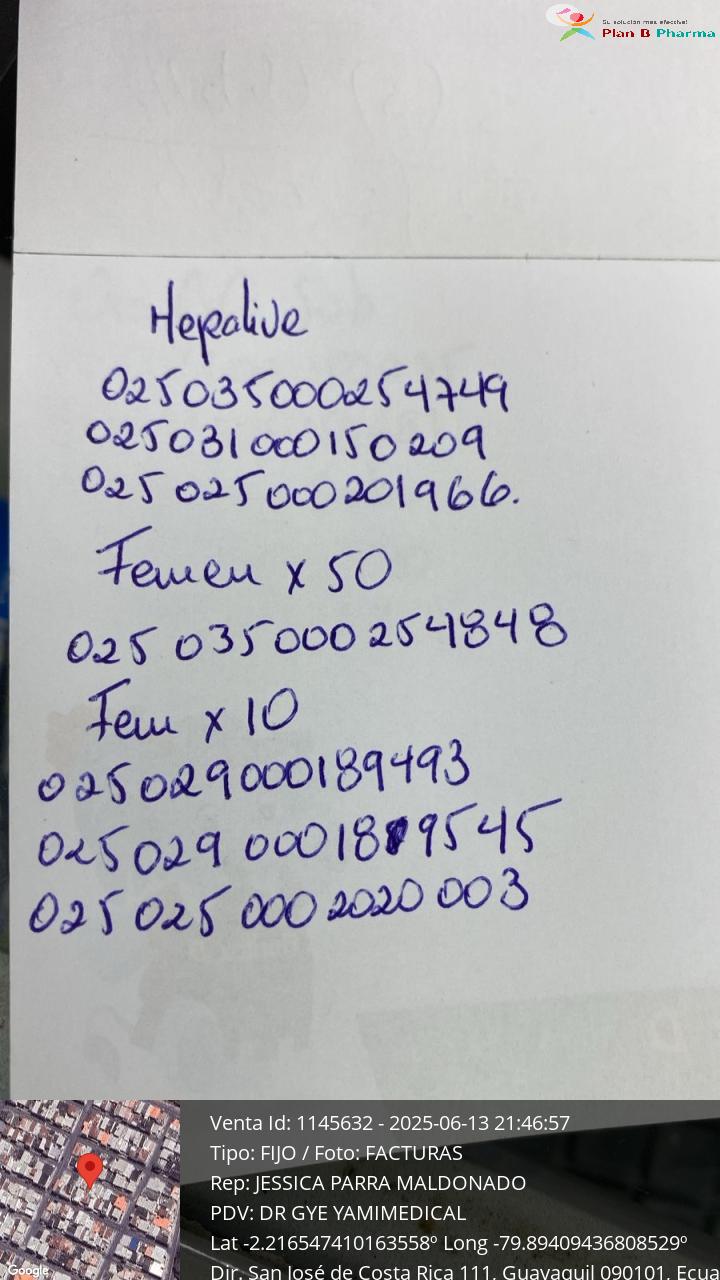 Su solución mas efectiva!
Plan B Pharma
Hepalive
025035000254749
025031000150209
025025000201966.
Femen x 50
025035000254848
Fem x 10
025029000189493
025029 000189545
025 025 000 2020 003
Venta Id: 1145632 - 2025-06-13 21:46:57
Tipo: FIJO / Foto: FACTURAS
Rep: JESSICA PARRA MALDONADO
PDV: DR GYE YAMIMEDICAL
Lat -2.216547410163558º Long -79.89409436808529º
Dir. San José de Costa Rica 111, Guayaquil 090101, Ecua
Google